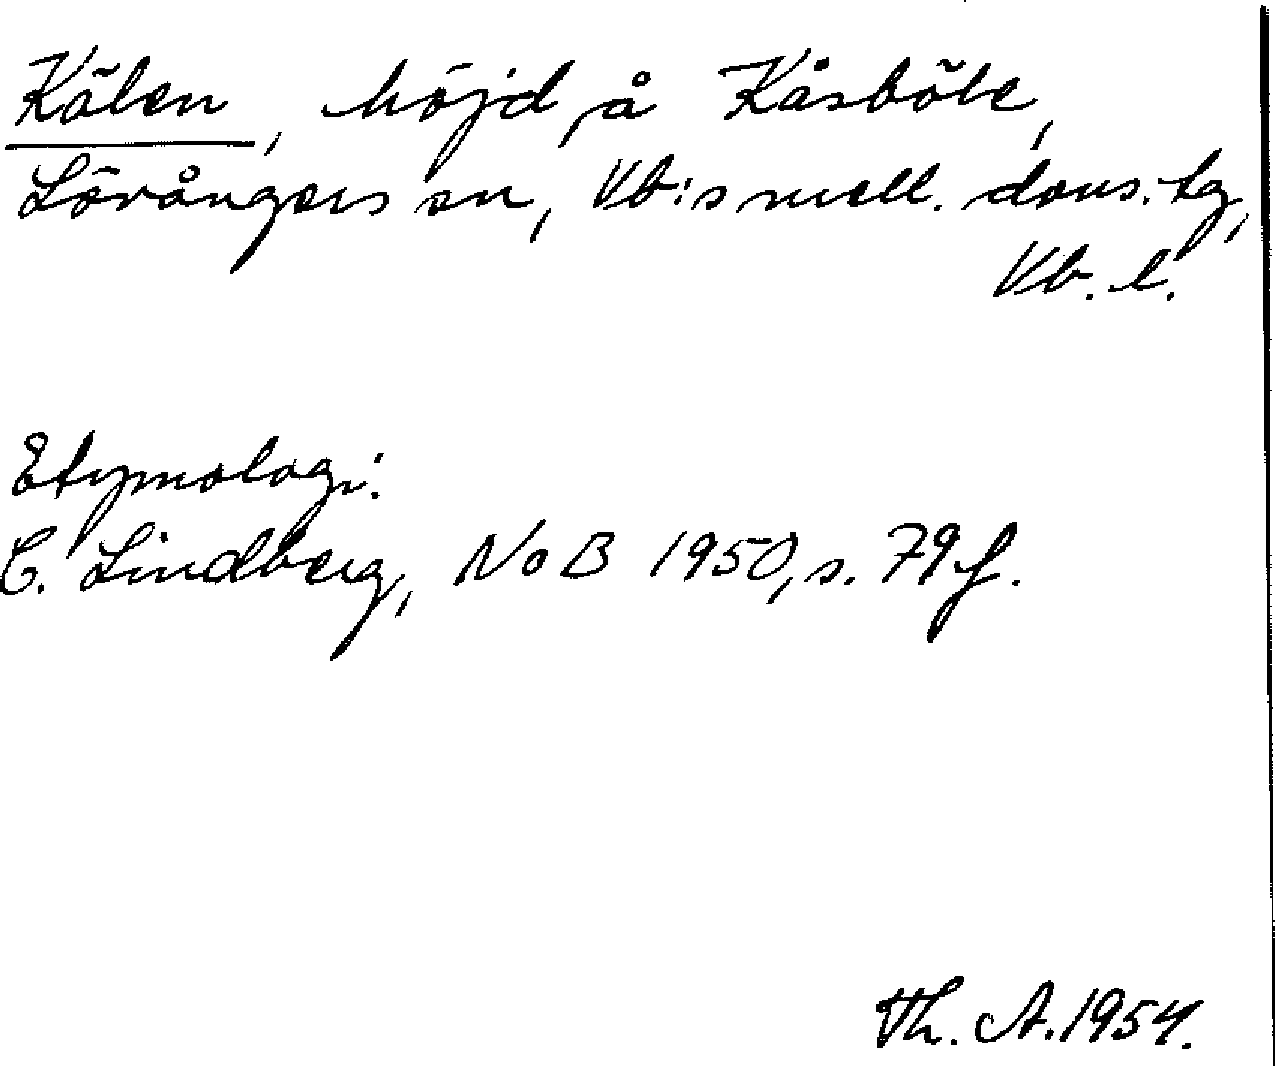 Kälen, höjd, å Kåsböle,
Lövångers sn, Vb:s mell. doms. tg,
Vb. l.
Etymologi:
C. Lindberg, NoB 1950, s. 79 f.
Th. A. 1954.